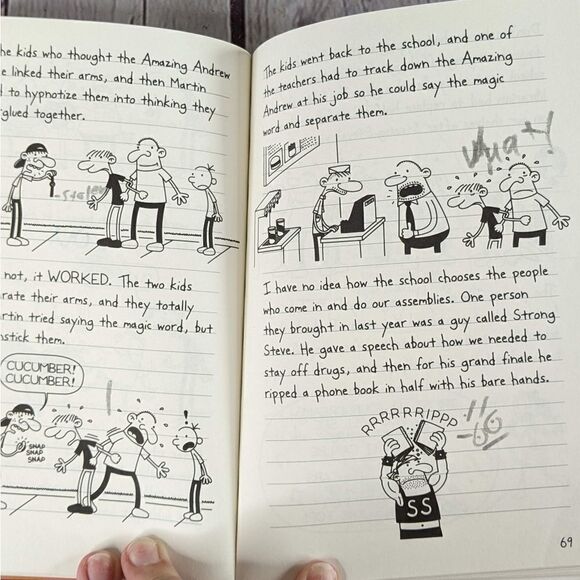 he kids who thought the Amazing Andrew
e linked their arms, and then Martin
d to hypnotize them into thinking they
glued together.
not, it WORKED. The two kids
arate their arms, and they totally
artin tried saying the magic word, but
nstick them.
CUCUMBER!
CUCUMBER!
SNAP
SNAP
SNAP
The kids went back to the school, and one of
the teachers had to track down the Amazing
Andrew at his job so he could say the magic
word and separate them.
What!
I have no idea how the school chooses the people
who come in and do our assemblies. One person
they brought in last year was a guy called Strong
Steve. He gave a speech about how we needed to
stay off drugs, and then for his grand finale he
ripped a phone book in half with his bare hands.
RRRRRRIPPP
SS
69